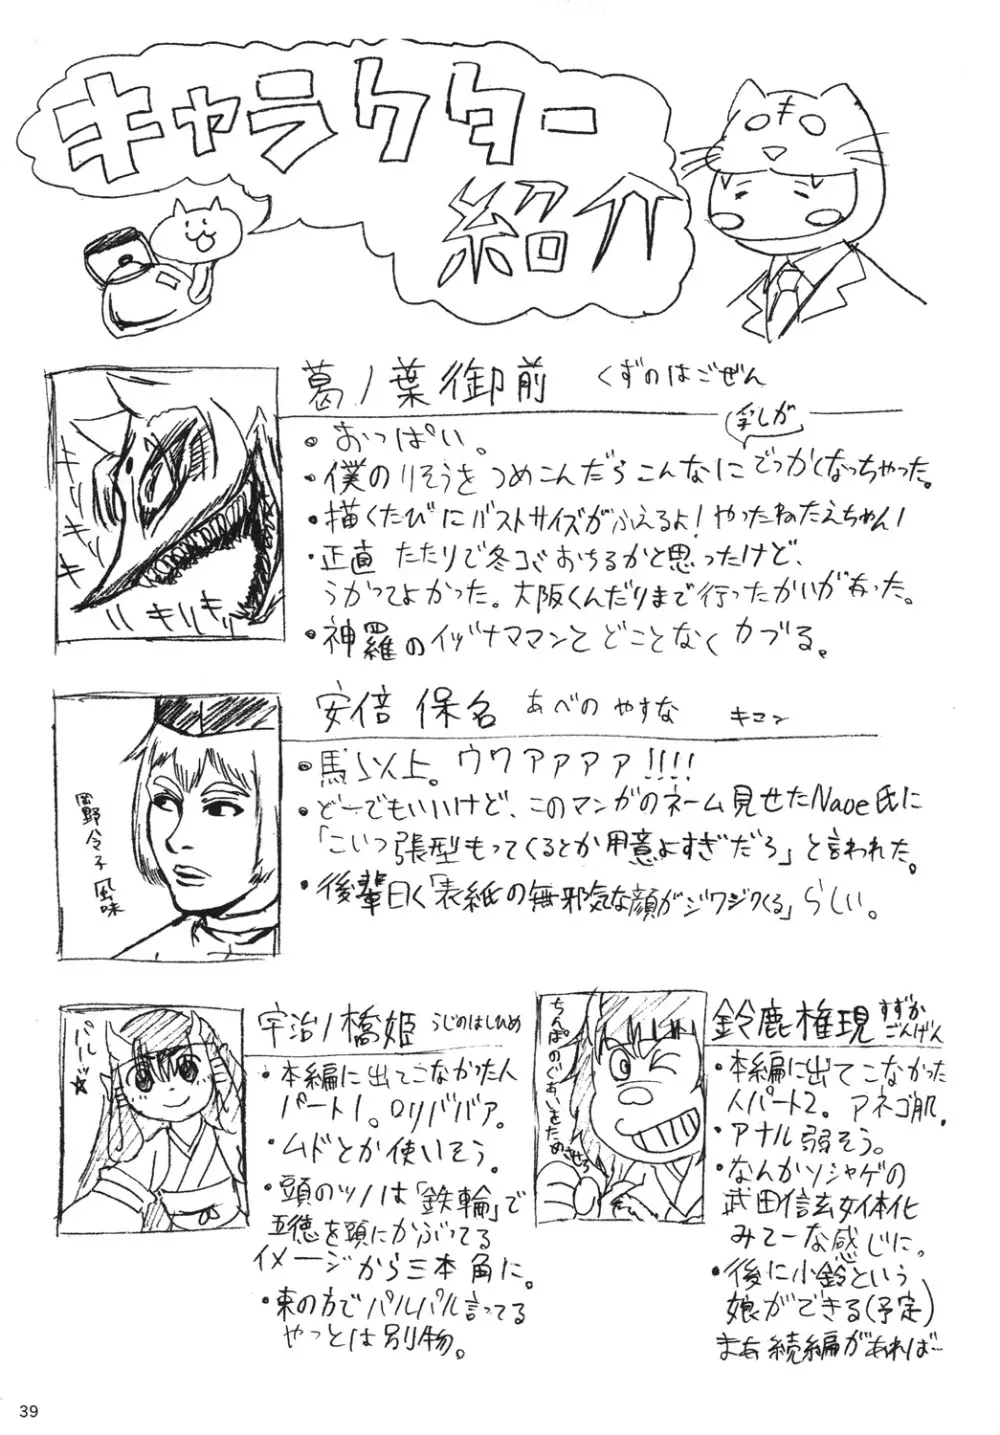 キャラクター
紹介
キ
葛ノ葉御前 くずのはごぜん
・おっぱい。
乳しが
・僕のりそうをつめこんだらこんなにでっかくなっちゃった。
・描くたびにバストサイズがふえるよ！やったねたえちゃん！
・正直たたりで冬コミおちるかと思ったけど、
うかってよかった。大阪くんだりまで行ったかいが有った。
・神羅のイヅナママンとどことなくカブる。
キィキィ
キリキリ
安倍保名 あべの やすな キコン
・馬以上。ウワァァァァ!!!!
・どーでもいいけど、このマンガのネーム見せたNaoe氏に
「こいつ張型もってくるとか用意よすぎだろ」と言われた。
・後輩曰く「表紙の無邪気な顔がジワジワくる」らしい。
岡野令子風味
宇治ノ橋姫 うじのはしひめ
・本編に出てこなかった人
パート1。ロリババア。
・ムドとか使いそう。
・頭のツノは「鉄輪」で
五徳を頭にかぶってる
イメージから三本角に。
・東の方でパルパル言ってる
やっとは別物。
パルッ☆
鈴鹿権現 すずか
ごんげん
・本編に出てこなかった
人パート2。アネゴ肌。
・アナル弱そう。
・なんかソシャゲの
武田信玄女体化
みてーな感じに。
・後に小鈴という
娘ができる(予定)
まあ続編があれば…
39